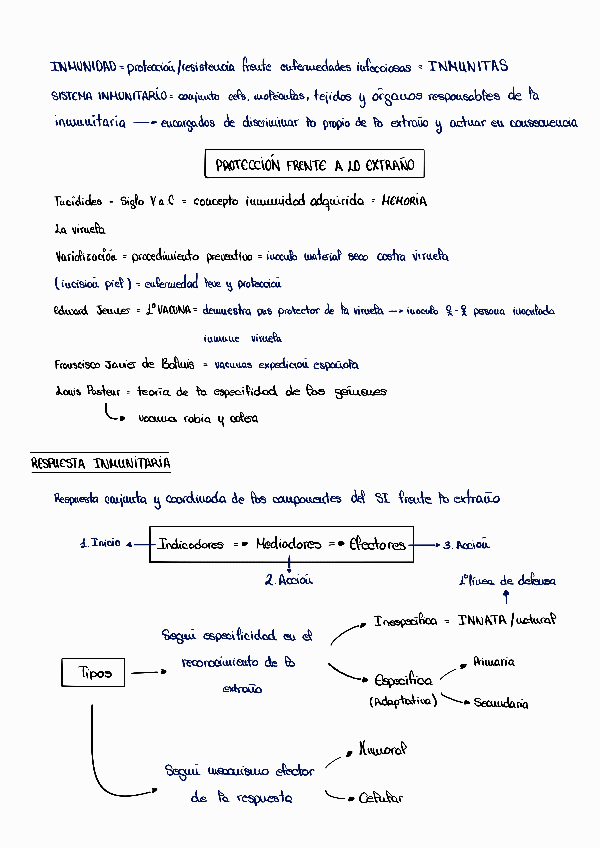 INMUNIDAD = protección/resistencia frente enfermedades infecciosas = INMUNITAS
SISTEMA INMUNITARIO = conjunto cels, moléculas, tejidos y órganos responsables de la
inmunitaria → encargados de discriminar lo propio de lo extraño y actuar en consecuencia
PROTECCIÓN FRENTE A LO EXTRAÑO
Tucídides - Siglo V a.C = concepto inmunidad adquirida = MEMORIA
La viruela
Variolización = procedimiento preventivo = inoculo material seco costra viruela
(incisión piel) = enfermedad leve y protección
Edward Jenner = 1º VACUNA = demuestra pus protector de la viruela → inoculo persona inoculada
inmune viruela
Francisco Javier de Balmis = vacunas expedición española
Louis Pasteur = teoría de la especifidad de los gérmenes
↳ vacunas rabia y colera
RESPUESTA INMUNITARIA
Respuesta conjunta y coordinada de los componentes del SI frente lo extraño
1. Inicio ← Indicadores =• Mediadores =• Efectores → 3. Acción
2. Acción
1º línea de defensa
Inespecífica = INNATA/natural
Según especificidad en el
reconocimiento de lo
extraño
Tipos
Específica
(Adaptativa)
Primaria
Secundaria
Según mecanismo efector
de la respuesta
Humoral
Celular